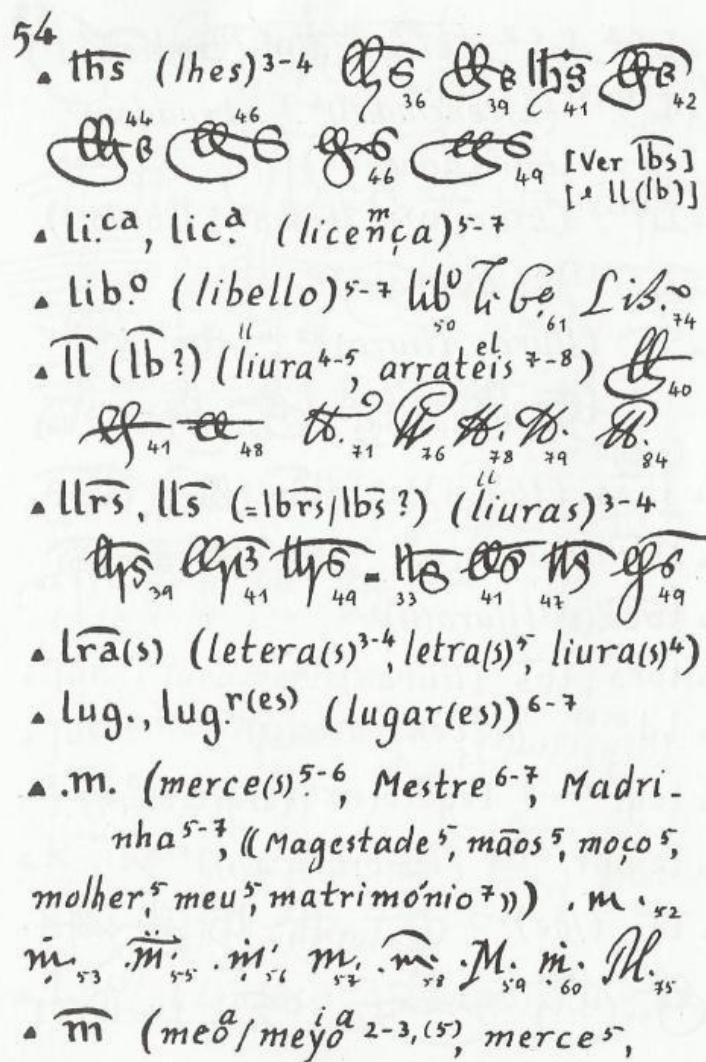 54
▲ l͞hs (lhes)³⁻⁴ 36 39 41 42
44 46 46 49 [Ver l͞bs]
[e ll(lb)]
▲ li.ᶜᵃ, lic.ᵃ (licença)⁵⁻⁷
▲ lib.º (libello)⁵⁻⁷ libº 50 61 Lib.º 74
▲ l͞l (l͞b?) (liura⁴⁻⁵, arrateis⁷⁻⁸) 40
41 48 71 76 78 79 84
▲ llr͞s, ll͞s (=lbr͞s/lb͞s?) (liuras)³⁻⁴
39 41 49 - 33 41 47 49
▲ lr͞a(s) (letera(s)³⁻⁴, letra(s)⁵, liura(s)⁴)
▲ lug., lug.ʳ⁽ᵉˢ⁾ (lugar(es))⁶⁻⁷
▲ .m. (merce(s)⁵⁻⁶, Mestre⁶⁻⁷, Madri-
nha⁵⁻⁷, ((Magestade⁵, mãos⁵, moço⁵,
molher⁵, meu⁵, matrimónio⁷)) .m. 52
m. 53 .m. 55 .m. 56 m. 57 .m. 58 .M. 59 m. 60 M. 75
▲ m͞ (meo/meyo ²⁻³,⁽⁵⁾, merce⁵,